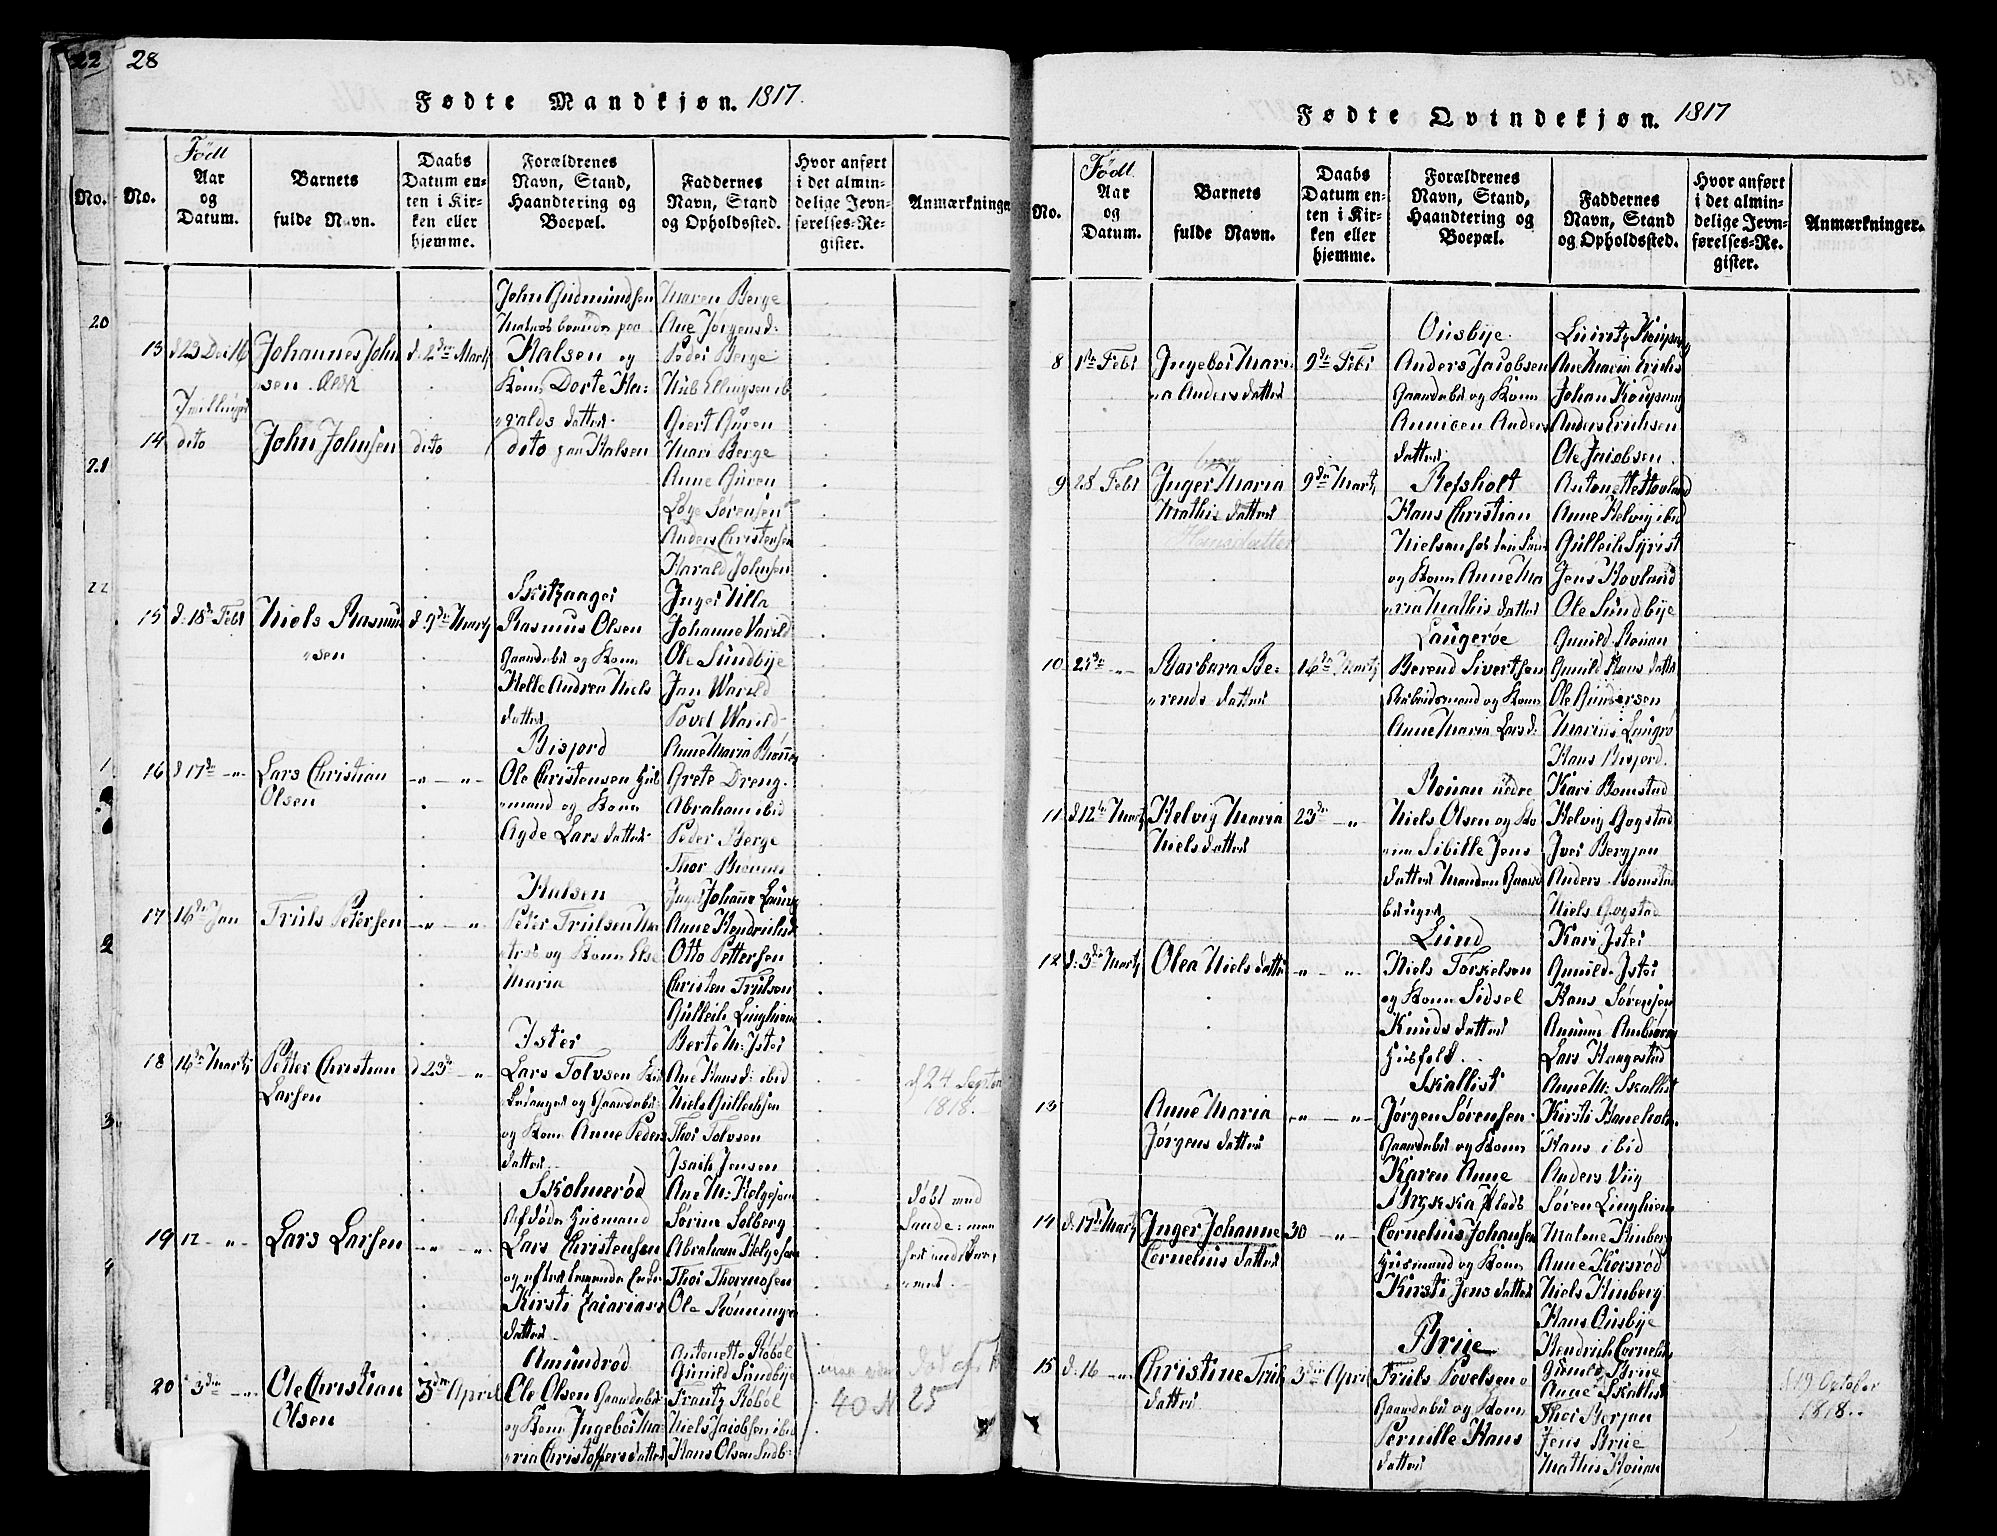 22
28
Fødte Mandkjøn. 1817.
No.
No.
Født
Aar
og
Datum.
Barnets
fulde Navn.
Daabs
Datum en-
ten i Kir-
ken eller
hjemme.
Forældrenes
Navn, Stand,
Haandtering og
Boepæl.
Faddernes
Navn, Stand
og Opholdssted.
Hvor anført
i det almin-
delige Jevn-
førelses-Re-
gister.
Anmærkninge
20
21
22
1
2
3
4
13
d 23 Dec 16
Johannes John
sen
d. 2den Marti
John Gudmundsen
Matros boende paa
Halsen og
Kone Dorte Ha-
ralds datter
Maren Berge
Ane Jørgensd:
Peder Berge
Giert Guren
Tvillinger
14
dito
John Johnsen
dito
dito paa Halsen
Mari Berge
Anne Guren
Løge Sørensen
Anders Christensen
Harald Johnsen
15
d: 18de Febr
Niels Rasmus
sen
d 9de Marti
Rasmus Olsen
og Kone
Helle Andrea Niels
datter
Inger Villa
Johanne Varild
Ole Sundbye
Jan Warild
Povel Warild
16
d 17de
Lars Christian
Olsen
Bisjord
Ole Christensen Hus
mand og Kone
Agde Lars datter
Anne Maria
Grete Dreng
Abraham ibid
Peder Berge
Thor
17
16de Jan
Truls Petersen
Halsen
Peter Trulsen Ma
tros og Kone Else
Maria
Inger Johanne
Anne Hendrichs
Otto Pettersen
Christen Trulsen
Gulleich
18
16de Marti
Petter Christian
Larsen
d 23de
Ister
Lars Tolvsen
og Kone Anne Peders
datter
Berte M: Ister
Ane Hans d: ibid
Niels Gullichsen
Thor Tolvsen
Isach Jensen
d 24 Septem
1818.
19
12
Lars Larsen
Skolmerød
Afdøde Husmand
Lars Christensen
og efterlevende Enke
Kirsti Zacarias
datter
Ane M: Helgesen
Sørine Solberg
Abraham Helgesen
Thor Thormosen
Ole Rønningen
døbt med
Sande
20
3die
Ole Christian
Olsen
3die April
Amundrød
Ole Olsen Gaardeber
og Kone Ingebor Ma
ria Christoffersdatter
Antonette Robøl
Gunild Sundbye
Frantz Robøl
Niels Jacobsen ibid
Hans Olsen Sundb:
40 N
25
Fødte Qvindekjøn. 1817
No.
Født
Aar
og
Datum.
Barnets
fulde Navn.
Daabs
Datum en-
ten i Kir-
ken eller
hjemme.
Forældrenes
Navn, Stand,
Haandtering og
Boepæl.
Faddernes
Navn, Stand
og Opholdssted.
Hvor anført
i det almin-
delige Jevn-
førelses-Re-
gister.
Anmærkninger.
8
1ste Febr
Ingebor Mari
a Anders datter
9de Febr
Ousbye
Anders Jacobsen
Gaardeber og Kone
Annicen Anders
datter
Ane Maria Erichs
Johan
Anders Erichsen
Ole Jacobsen
9
28 Febr
Inger Maria
Mathis datter
Hansdatter
9de Marti
Refsholt
Hans Christian
Nielsen
og Kone Anne Ma
ria Mathis datter
Antonette Hovland
Anne Helvig ibid
Gulleich Syrist
Jens Hovland
Ole Sundbye
10
25de
Barbara Be-
rends datter
16de Marti
Laugerøe
Berend Sivertsen
Arbeidsmand og Kone
Anne Maria Larsd:
Gunild Rouan
Gunild Hans datter
Ole Gundersen
Marius Laugrø
Hans Bisjord.
11
d. 12te Marti
Helvig Maria
Niels datter
23de
Rouan nedre
Niels Olsen og Ko
ne Sibille Jens
datter Manden Gaard
bruger
Kari Bomstad
Helvig Gogstad
Iver Bergjan
Anders Bomstad
Niels Gogstad
12
d: 3de Marti
Olea Niels datter
Lund
Niels Torkelsen
og Kone Sidsel
Knuds datter
Husfolk
Kari Ister
Gunild Ister
Hans Sørensen
Lars Haugestad
13
Anne Maria
Jørgens datter
Skallist
Jørgen Sørensen
Gaardeber og Kone
Karen Anne
Anne M: Skallist
Kirsti Haneholm
Hans ibid
Anders Viig
Søren
14
d: 17de Marti
Inger Johanne
Cornelius datter
30
Plads
Cornelius Johansen
Husmand og Kone
Kirsti Jens datter
Malene Hinberg
Anne Korsrød
Niels Hinberg
Hans Ousbye
Hendrich Cornelius
15
d: 16
Christine Truls
datter
3die April
Brue
Truls Povelsen
Gaardeber og Kone
Pernille Hans
datter
Gunild Brue
Anne Skallist
Thor Berjan
Jens Brue
Mathis Rouan
d 19 October
1818.